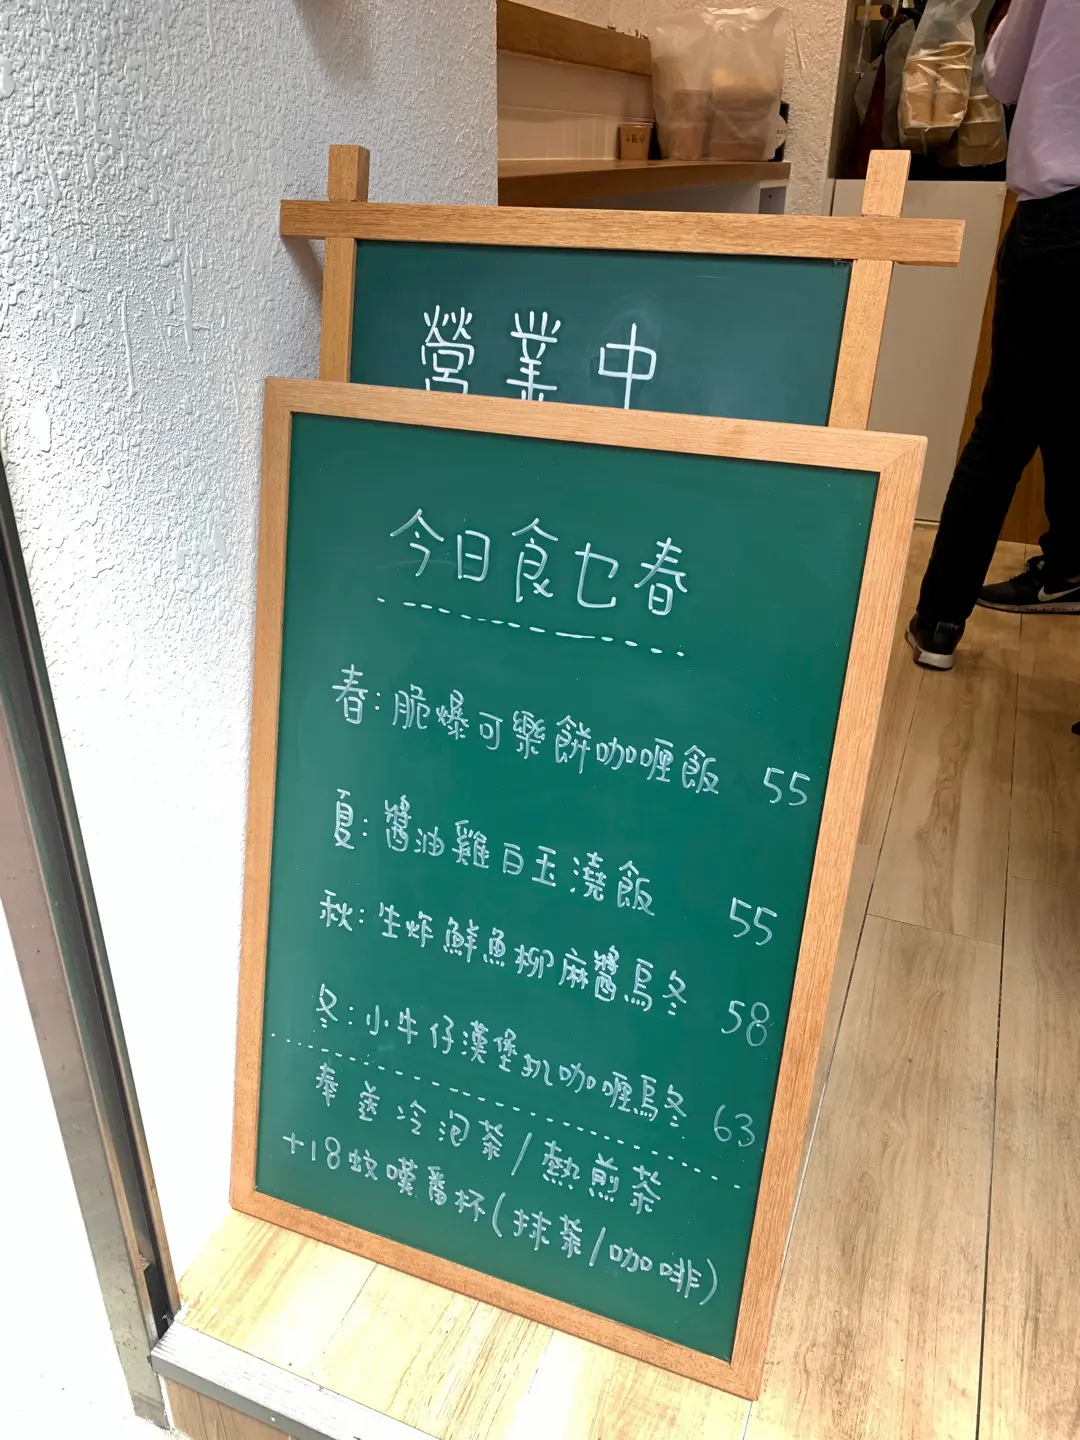 營業中
今日食乜春
春:脆爆可樂餅咖喱飯 55
夏:醬油雞白玉澆飯 55
秋:生炸鮮魚柳麻醬烏冬 58
冬:小牛仔漢堡扒咖喱烏冬 63
奉送冷泡茶/熱煎茶
+18蚊嘆番杯(抹茶/咖啡)